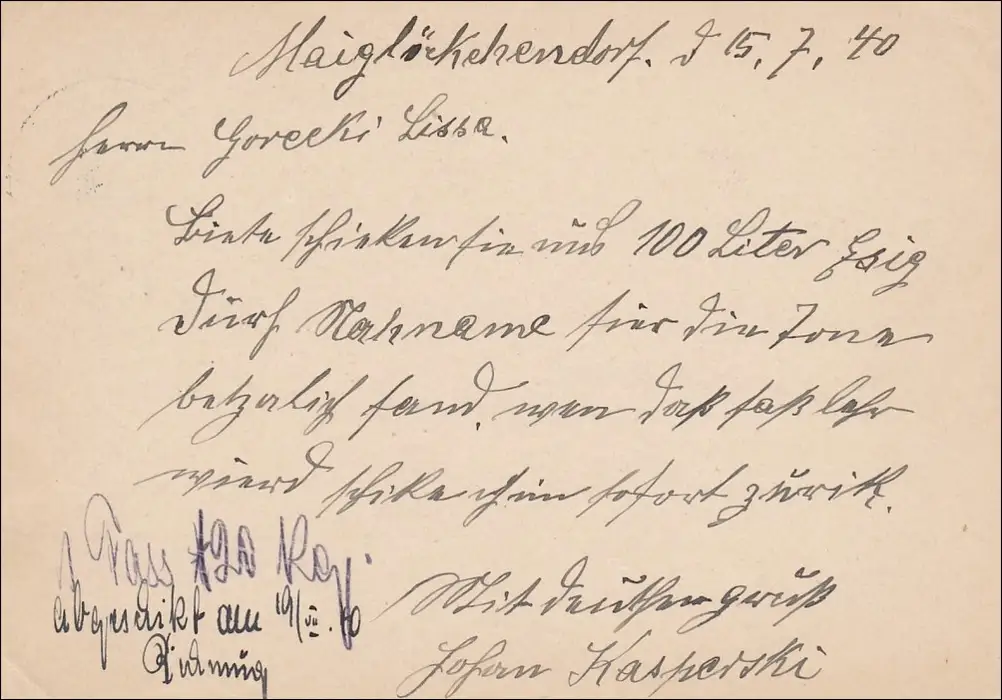 Maiglöckchendorf. d 15. 7. 40
Herrn Gorecki Lissa.
Biete schieken sie uns 100 Liter Esig
Durch Nahname für die Tone
betzalich fand. wen daß faß lehr
wierd schike ich in sofort zurik.
Mit deuthen gruß
Johan Kasperski
1 Fass 120 Kg.
abgeschikt am 19/VII. 40